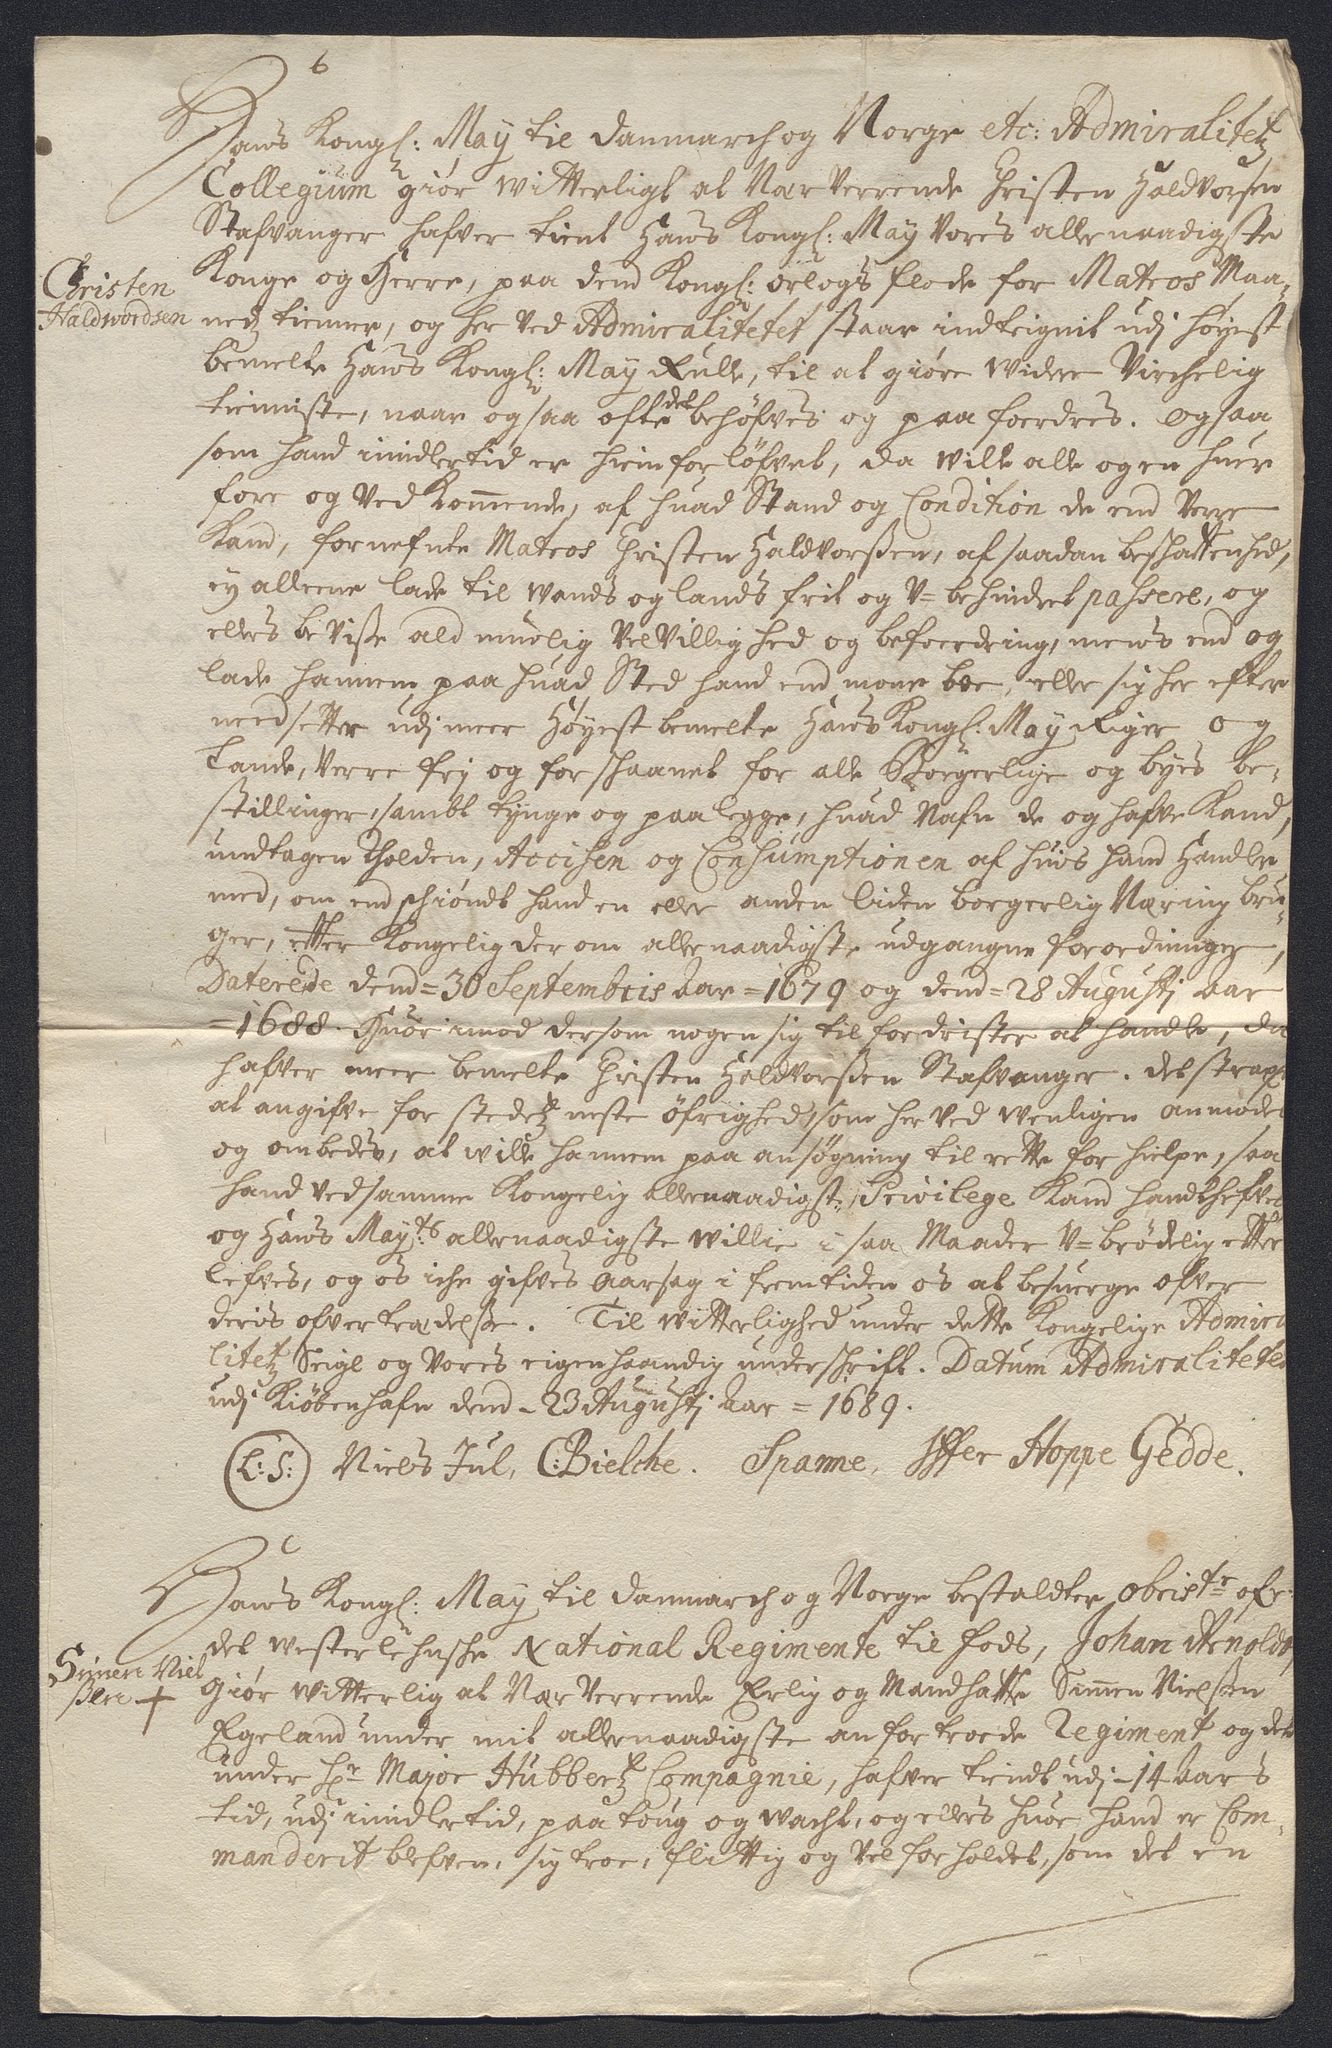 6
Hans Kongl: May til Danmarch og Norge etc: Admiralitetz
Collegium giør witterligt at Nær Verrende Christen Haldvorsen
Stafvanger hafver tient Hans Kongl: May Vores allernaadigste
Konge og Herre, paa dend Kongl: orlogs flode for Mateos Maa-
Christen
Haldwordsen
nedz tienner, og her ved Admiralitetet staar indteignit udj høyest
bemelte Hans Kongl: May Rulle, til at giøre widere Virchelig
tienniste, naar og saa ofte det behöfves og paa foerdres. og saa
som hand imidlertid er hiem forlöfvet, da wille alle og en huer
fore og Ved Kommende, af huad Stand og Condition de end Verre
Kand, fornefnte Mateos Christen Haldvorßen, af saadan beschaffenhed,
ey alleene lade til wands og lands frit og V=behindret passere, og
ellers beviße ald muelig Velvillighed og befoerdring, mens end og
lade hannem paa huad Sted hand end mone boe, eller sig her efter
needsetter udj meer Høyest bemelte Hans Kongl: May Riger og
Lande, Verre frj og forschaanet for alle Borgerlige og byes be-
stillinger, sambt tynge og paalegge, huad Nafn de og hafve Kand,
undtagen Tholden, Accisen og Consumptionen af huis hand Handler
med, om end schiøndt hand en eller anden liden borgerlig Næring bru-
ger, effter Kongelig der om allernaadigste udgangne forordninger,
Daterede dend=30 Septembris Aar=1679 og dend=28 Augustj Aar
=1688. Huor imod dersom nogen sig tilfordrister at handle, da
hafver meer bemelte Christen Haldvorßen Stafvanger. det strax
at angifve for stedetz neste öfrighed, som her ved wenligen anmodes
og ombedes, at wille hannem paa ansøgning til rette forhielpe, saa
hand ved samme Kongelig Allernaadigste Privilege Kand handthefves
og Hans Mayts allernaadigste willie i saa Maader V=brödelig effter
lefves, og os iche gifves Aarsag i fremtiden os at besverge ofver
deris ofvertrædelße. Til witterlighed under dette Kongelige Admira
litetz Seigl og Vores eigenhaandig underschrift. Datum Admiralitetet
udj Kiöbenhafn dend-23 Augustj Aar=1689.
L:S: Niels Jul, C:Bielche. Spanne, Iffer Hoppe Gedde.
Hans Kongl: May til Danmarch og Norge bestaldter obriste ofr:
det westerlehnsche National Regimente til fods, Johan Arnoldt,
Simen Niel
ßen +
Giør witterlig at Nær Verrende Erlig og Mandhafte Simen Nielßen
Egeland under mit allernaadigste anfortroede Regiment og det
under Hr Major Hübbertz Compagnie, hafver tiendt udj-14 Aars
tid, udj imidlertid, paa toug og wacht, og ellers huor hand er Com-
manderit blefven, sig troe, flittig og vel forholdet, som det en